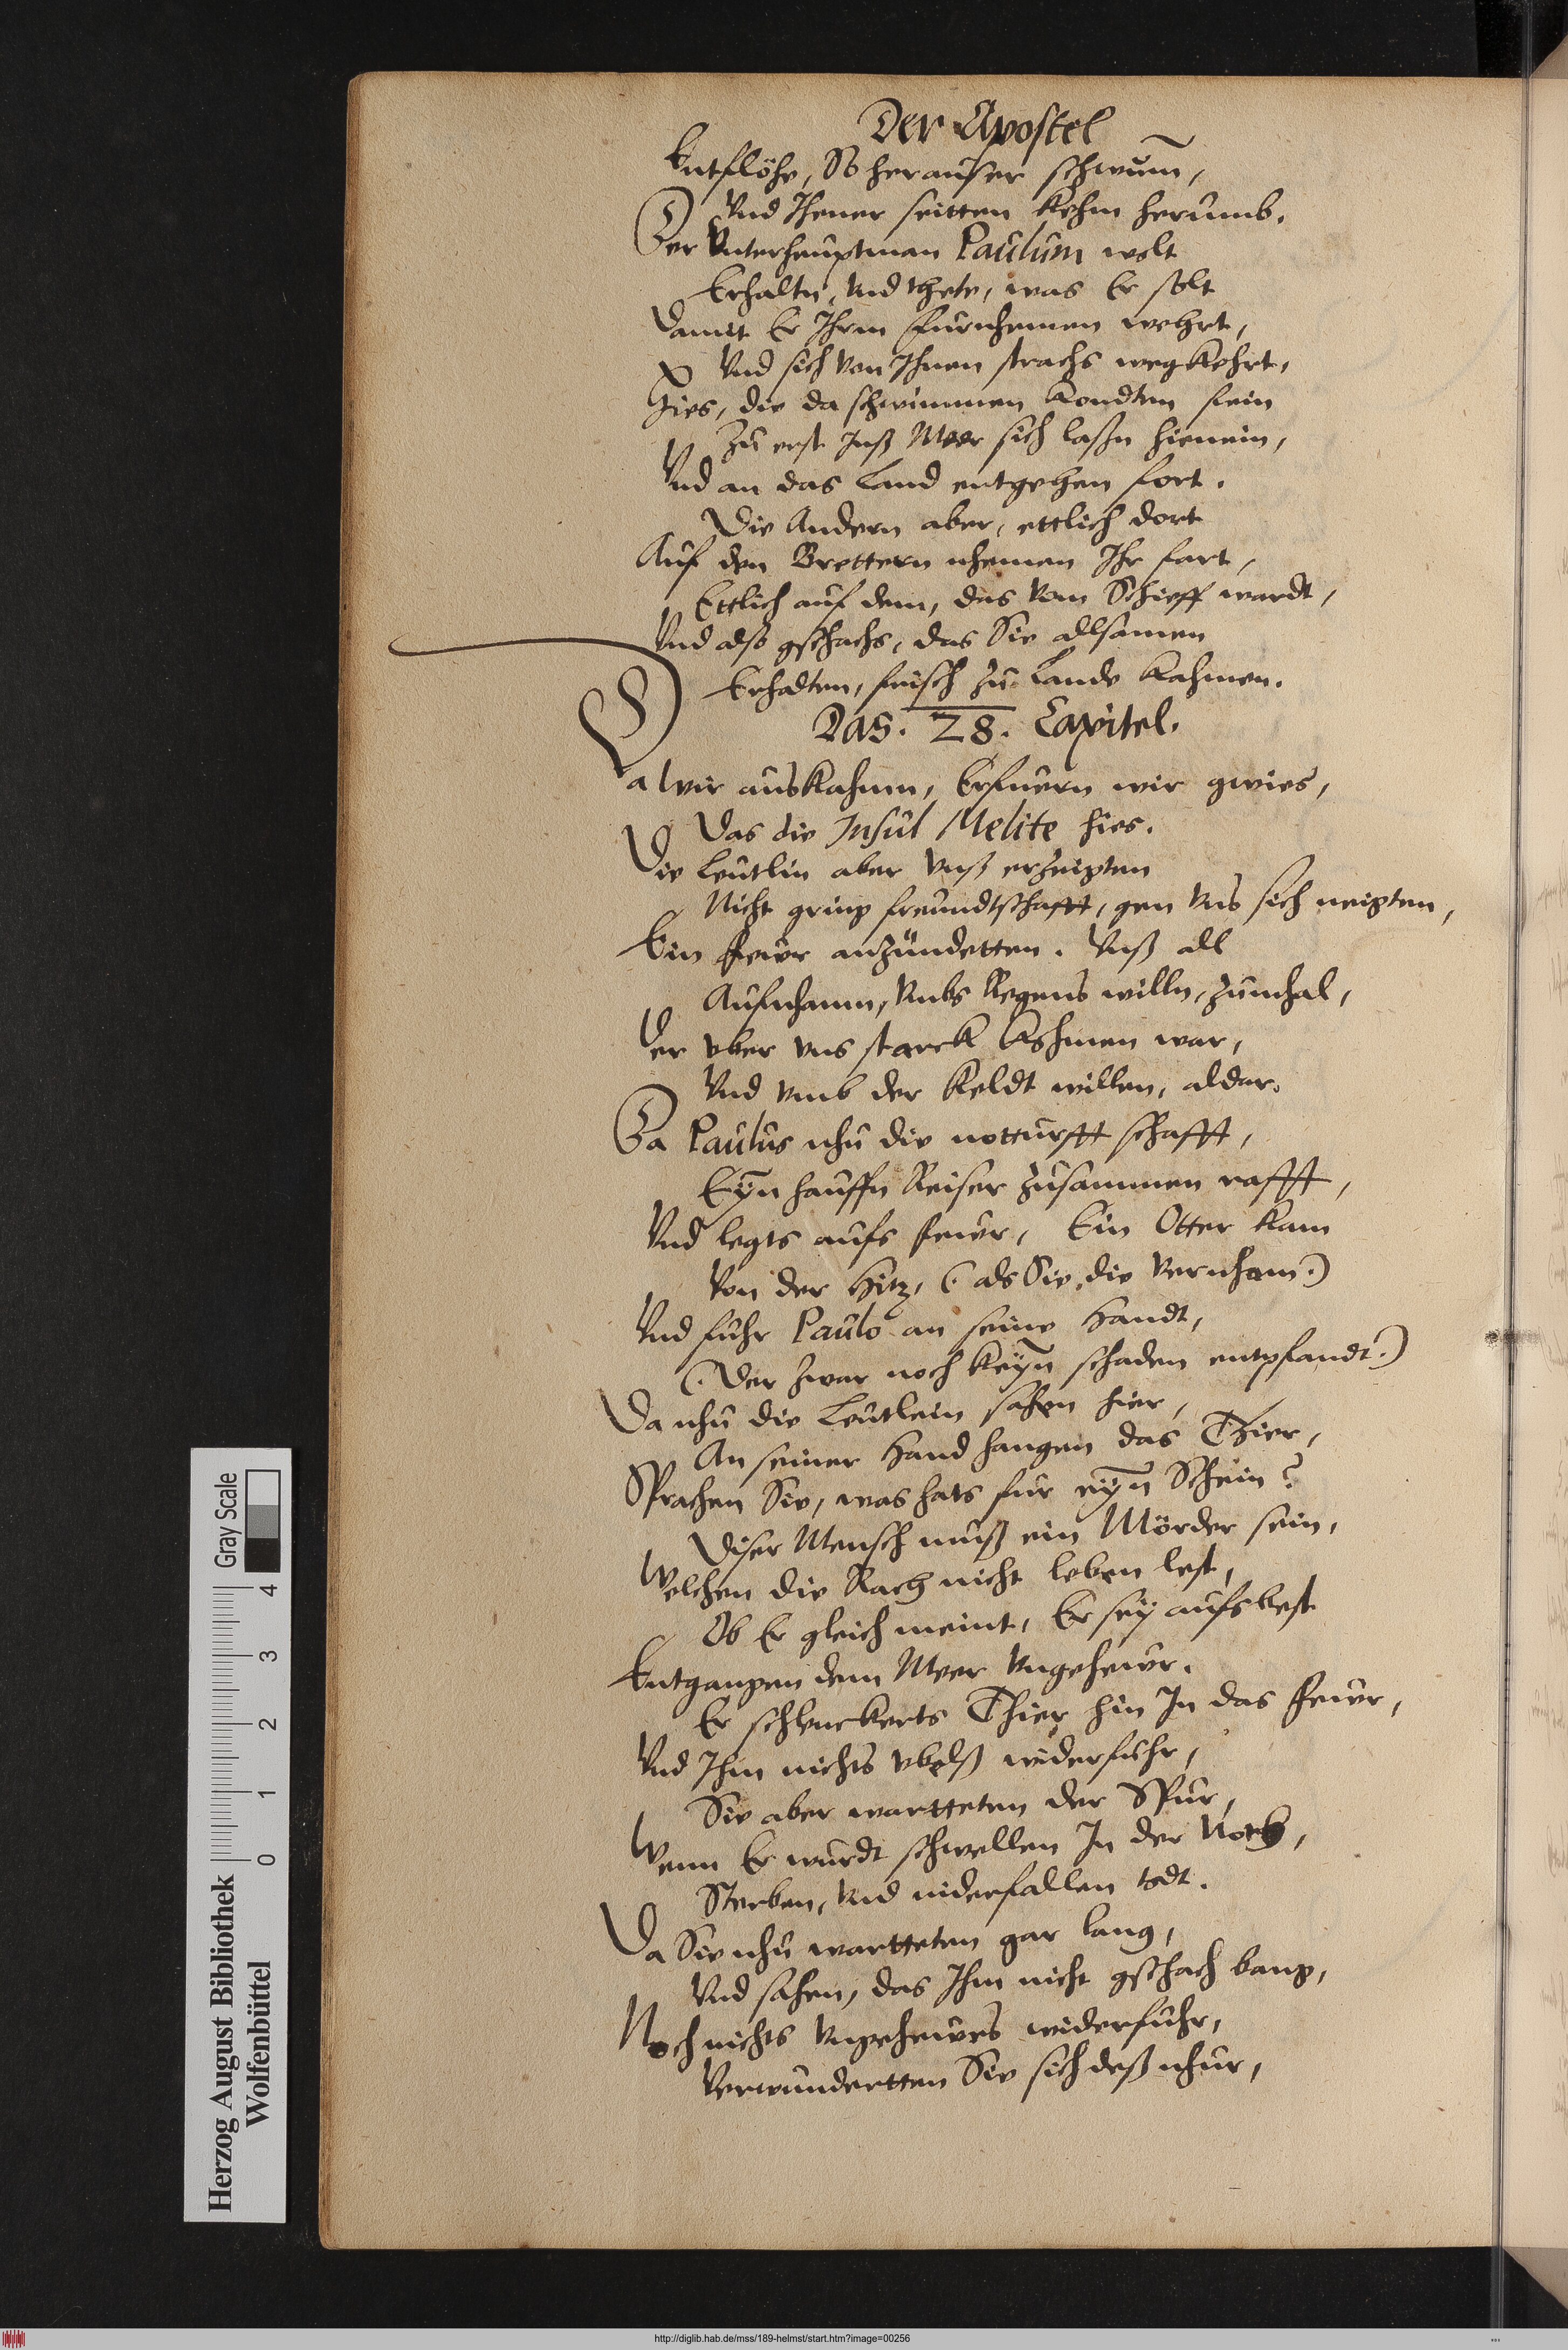 Der Apostel
Entflöhe, So herausser schwum̃,
Und Ihener seitten kehm herumb.
Der Unterhauptman Paulum wolt
Erhaltn, und thete, was Er solt
Damit Er Ihrm furnhemen wehrt,
Und sich von Ihnen strachs wegkehrt,
Hies, die da schwimmen kondten fein
Zu erst Inß Meer sich laßn hienein,
Und an das Land entgehen fort.
Die Andern aber, ettlich dort
Auf den Brettern nhemen Ihr fart,
Ettlich auf dem, das vom Schieff wardt,
Und also gschachs, das Sie allsamen
Erhalten, frisch zu Lande kahmen.
Das. 28. Capitel.
Da wir auskahmn, Erfuern wir gwies,
Das die Insul Melite hies.
Die Leutlin aber unß erzeigten
Nicht gring freundtschafft, gen uns sich neigten,
Ein feuer anzündetten. Unß all
Aufnhamn, umbs Regens willn, zumhal,
Der uber uns starck kohmen war,
Und umb der Keldt willen, aldar.
Da Paulus nhu die notturfft schafft,
Eÿn hauffn Reiser zusammen rafft,
Und legts aufs feuer, Ein Otter kam
Von der Hitz, (. als Sie die vernham.)
Und fuhr Paulo an seine Handt,
(. Der zwar noch keÿn schaden entpfandt.)
Da nhu die Leutlein sahen hier,
An seiner Hand hangen das Thier,
Sprachen Sie, was hats fur eÿn Schein?
Diser Mensch muß ein Mörder sein,
Welchen die Rach nicht leben lest,
Ob Er gleich meint, Er seÿ aufs best
Entgangen dem Meer Ungeheur.
Er schlenckerts Thier hin In das feuer,
Und Ihm nichts ubelß widerfuhr,
Sie aber wartteten der Spur,
Wenn Er wurdt schwellen In der Noth,
Sterben, und niderfallen todt.
Da Sie nhu wartteten gar lang,
Und sahen, das Ihm nicht gschach bang,
Noch nichts Ungeheures widerfuhr,
Verwundertten Sie sich deß nhur,
Herzog August Bibliothek
Wolfenbüttel
0 1 2 3 4
Gray Scale
http://diglib.hab.de/mss/189-helmst/start.htm?image=00256